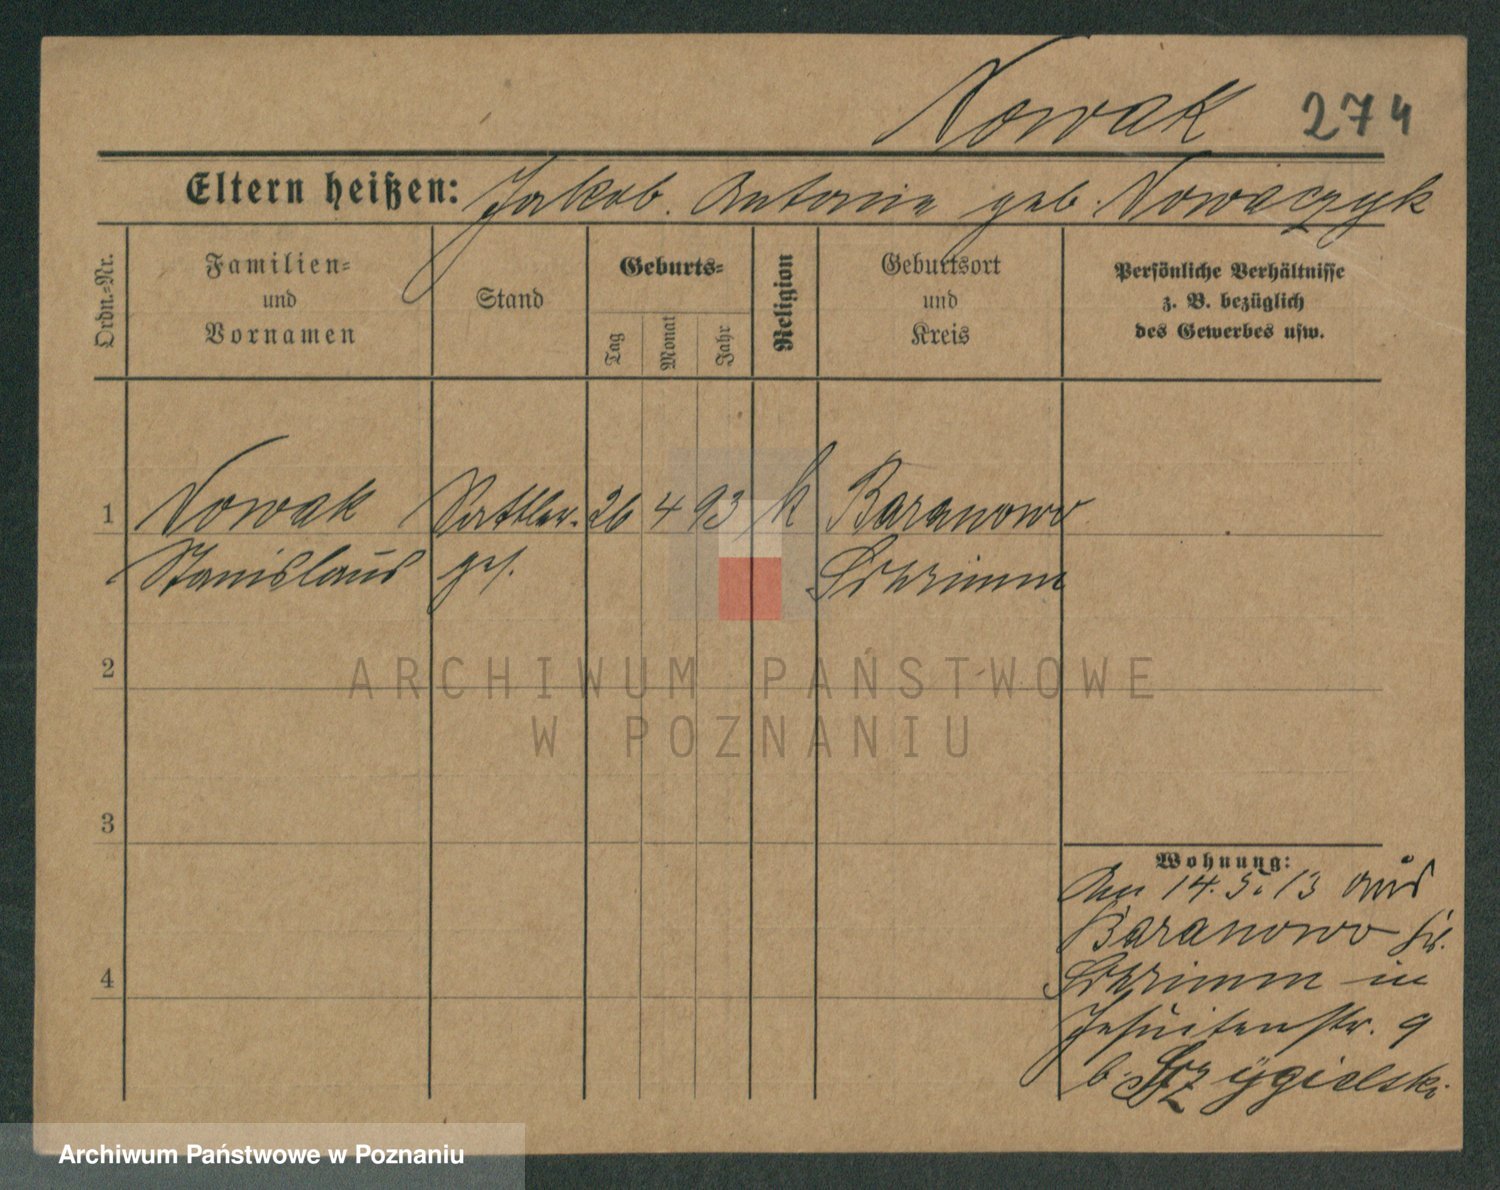 Nowak 274
Eltern heißen: Jakob. Antonie geb. Nowaczyk
Ordn.-Nr.
Familien-
und
Vornamen
Stand
Geburts-
Tag
Monat
Jahr
Religion
Geburtsort
und
Kreis
Persönliche Verhältnisse
z. B. bezüglich
des Gewerbes usw.
1 Nowak Sattler- 26 4 93 k Baranowo
Stanislaus ges. Schrimm
2
3
4
Wohnung:
Am 14.5.13 aus
Baranowo
Schrimm in
Jesuitenstr. 9
b.
ARCHIWUM PAŃSTWOWE
W POZNANIU
Archiwum Państwowe w Poznaniu